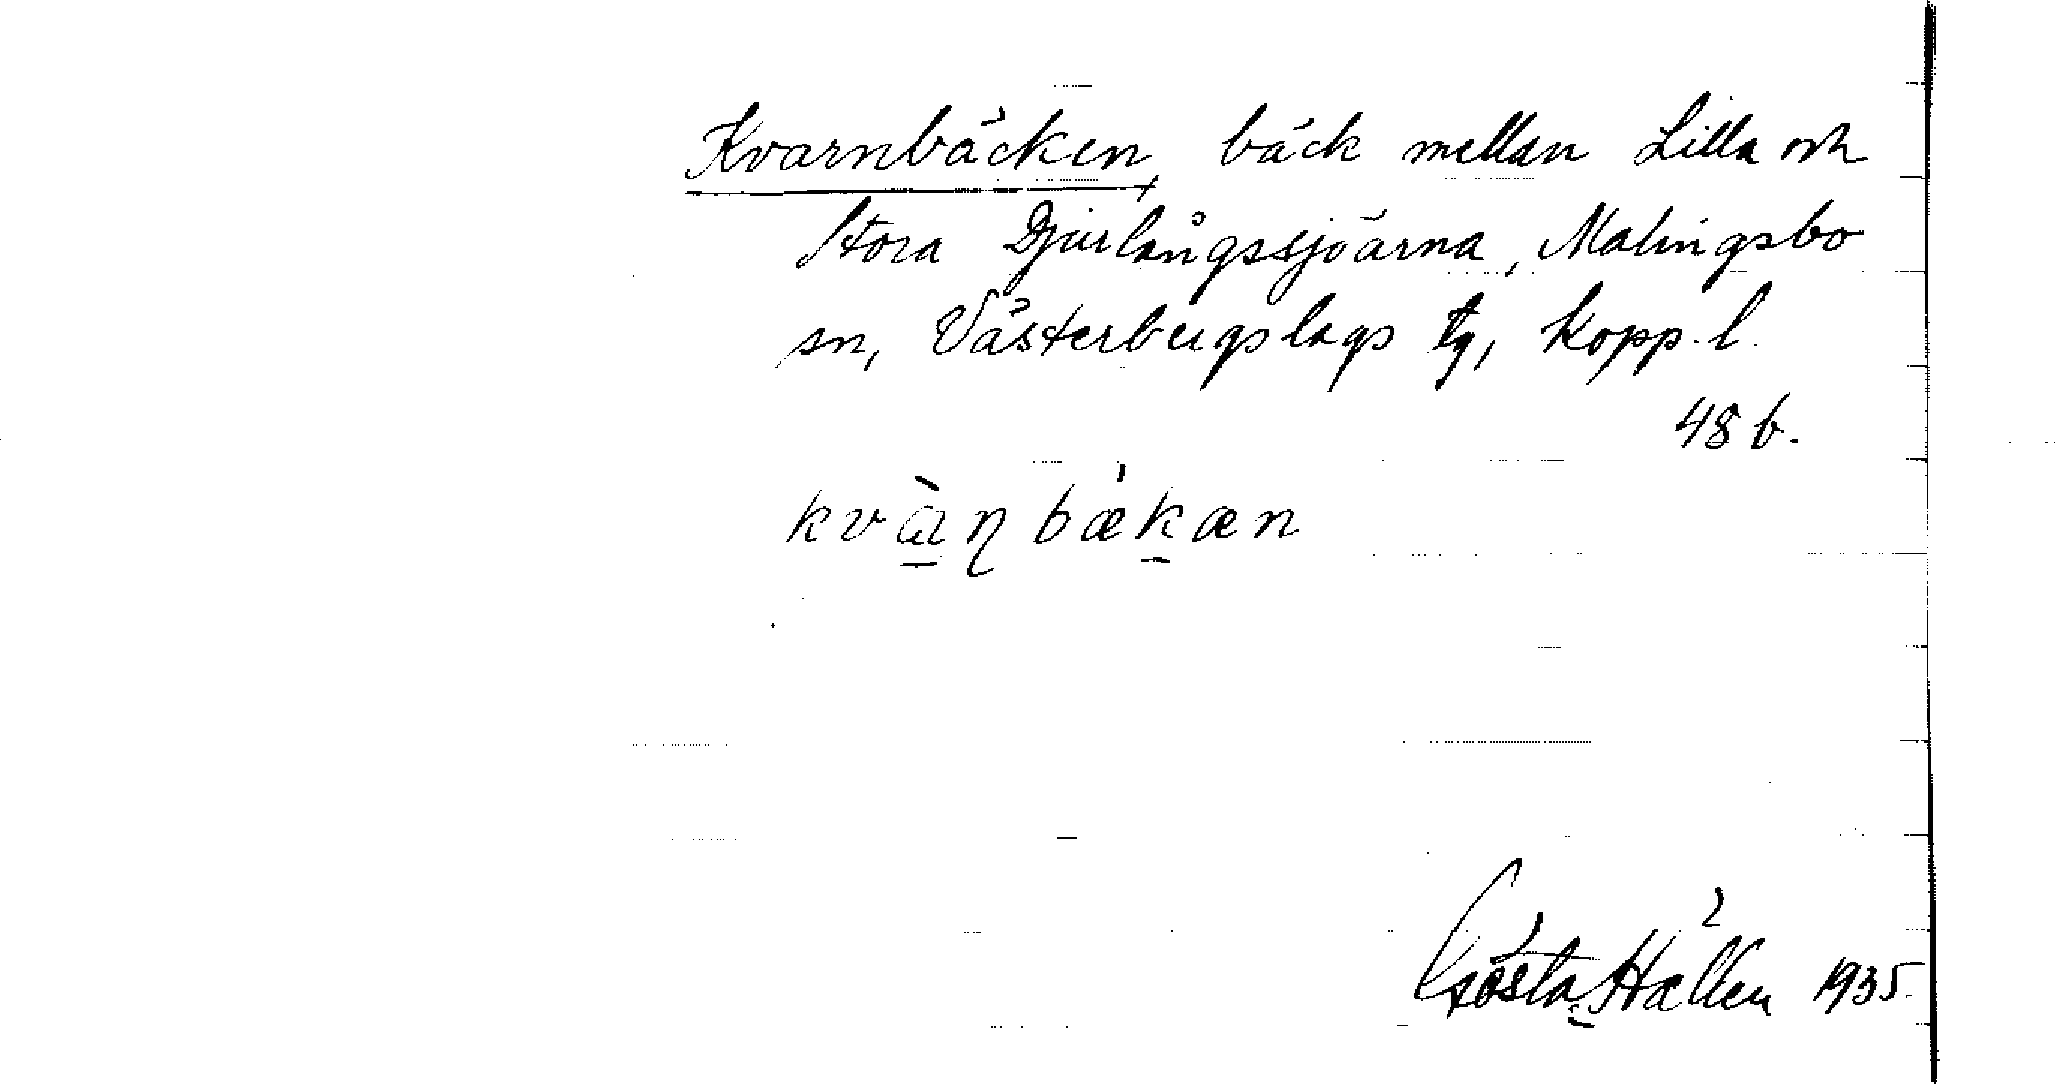 Kvarnbäcken, bäck mellan Lilla och
Stora Djurlångssjöarna, Malingsbo
sn, Västerbergslags tg, Kopp. l.
48 b.
kvàṇbækæn
Gösta Hällen 1935.